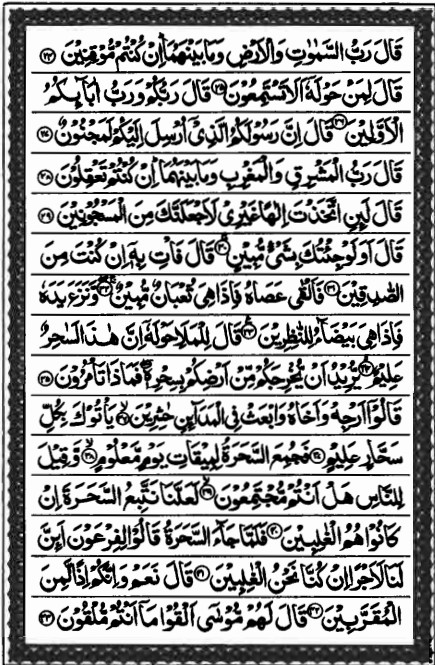 قَالَ رَبُّ السَّمٰوٰتِ وَالْاَرْضِ وَمَا بَيْنَهُمَا اِنْ كُنْتُمْ مُّوْقِنِيْنَ ۝۲۴
قَالَ لِمَنْ حَوْلَهٗۤ اَلَا تَسْتَمِعُوْنَ ۝۲۵ قَالَ رَبُّكُمْ وَرَبُّ اٰبَآىِٕكُمُ
الْاَوَّلِيْنَ ۝۲۶ قَالَ اِنَّ رَسُوْلَكُمُ الَّذِيْۤ اُرْسِلَ اِلَيْكُمْ لَمَجْنُوْنٌ ۝۲۷
قَالَ رَبُّ الْمَشْرِقِ وَالْمَغْرِبِ وَمَا بَيْنَهُمَا اِنْ كُنْتُمْ تَعْقِلُوْنَ ۝۲۸
قَالَ لَىِٕنِ اتَّخَذْتَ اِلٰهًا غَيْرِيْ لَاَجْعَلَنَّكَ مِنَ الْمَسْجُوْنِيْنَ ۝۲۹
قَالَ اَوَلَوْ جِئْتُكَ بِشَيْءٍ مُّبِيْنٍ ۝۳۰ قَالَ فَاْتِ بِهٖۤ اِنْ كُنْتَ مِنَ
الصّٰدِقِيْنَ ۝۳۱ فَاَلْقٰى عَصَاهُ فَاِذَا هِيَ ثُعْبَانٌ مُّبِيْنٌ ۝۳۲ وَّنَزَعَ يَدَهٗ
فَاِذَا هِيَ بَيْضَآءُ لِلنّٰظِرِيْنَ ۝۳۳ قَالَ لِلْمَلَاِ حَوْلَهٗۤ اِنَّ هٰذَا لَسٰحِرٌ
عَلِيْمٌ ۝۳۴ يُّرِيْدُ اَنْ يُّخْرِجَكُمْ مِّنْ اَرْضِكُمْ بِسِحْرِهٖ فَمَاذَا تَاْمُرُوْنَ ۝۳۵
قَالُوْۤا اَرْجِهْ وَاَخَاهُ وَابْعَثْ فِي الْمَدَآىِٕنِ حٰشِرِيْنَ ۝۳۶ يَاْتُوْكَ بِكُلِّ
سَحَّارٍ عَلِيْمٍ ۝۳۷ فَجُمِعَ السَّحَرَةُ لِمِيْقَاتِ يَوْمٍ مَّعْلُوْمٍ ۝۳۸ وَّقِيْلَ
لِلنَّاسِ هَلْ اَنْتُمْ مُّجْتَمِعُوْنَ ۝۳۹ لَعَلَّنَا نَتَّبِعُ السَّحَرَةَ اِنْ
كَانُوْا هُمُ الْغٰلِبِيْنَ ۝۴۰ فَلَمَّا جَآءَ السَّحَرَةُ قَالُوْا لِفِرْعَوْنَ اَىِٕنَّ
لَنَا لَاَجْرًا اِنْ كُنَّا نَحْنُ الْغٰلِبِيْنَ ۝۴۱ قَالَ نَعَمْ وَاِنَّكُمْ اِذًا لَّمِنَ
الْمُقَرَّبِيْنَ ۝۴۲ قَالَ لَهُمْ مُّوْسٰۤى اَلْقُوْا مَاۤ اَنْتُمْ مُّلْقُوْنَ ۝۴۳